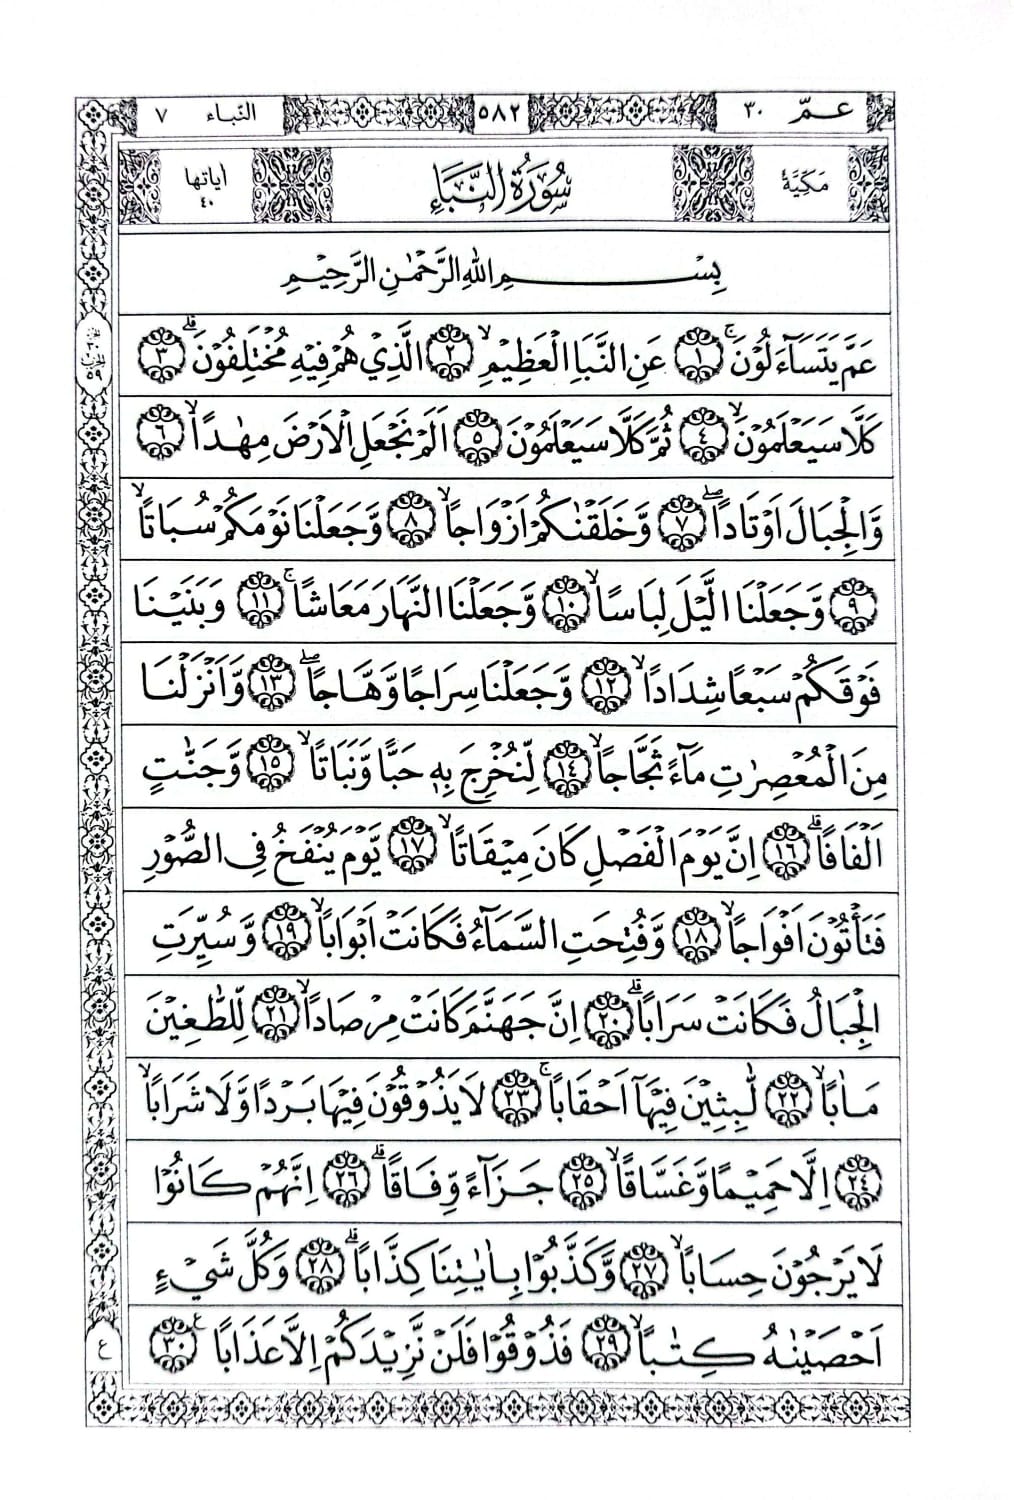 عـمّ ٣٠
٥٨٢
النّباء ٧
مَكِّيَّةٌ
سُوْرَةُ النَّبَاِ
اٰياتها ٤٠
بِسْـــــــــمِ اللهِ الرَّحْمٰنِ الرَّحِيْمِ
عَمَّ يَتَسَآءَلُوْنَۚ ١ عَنِ النَّبَاِ الْعَظِيْمِۙ ٢ الَّذِيْ هُمْ فِيْهِ مُخْتَلِفُوْنَۗ ٣
كَلَّا سَيَعْلَمُوْنَۙ ٤ ثُمَّ كَلَّا سَيَعْلَمُوْنَ ٥ اَلَمْ نَجْعَلِ الْاَرْضَ مِهٰدًاۙ ٦
وَّالْجِبَالَ اَوْتَادًاۖ ٧ وَّخَلَقْنٰكُمْ اَزْوَاجًاۙ ٨ وَّجَعَلْنَا نَوْمَكُمْ سُبَاتًاۙ
٩ وَّجَعَلْنَا الَّيْلَ لِبَاسًاۙ ١٠ وَّجَعَلْنَا النَّهَارَ مَعَاشًاۚ ١١ وَبَنَيْنَا
فَوْقَكُمْ سَبْعًا شِدَادًاۙ ١٢ وَّجَعَلْنَا سِرَاجًا وَّهَّاجًاۖ ١٣ وَّاَنْزَلْنَا
مِنَ الْمُعْصِرٰتِ مَآءً ثَجَّاجًاۙ ١٤ لِّنُخْرِجَ بِهٖ حَبًّا وَّنَبَاتًاۙ ١٥ وَّجَنّٰتٍ
اَلْفَافًاۗ ١٦ اِنَّ يَوْمَ الْفَصْلِ كَانَ مِيْقَاتًاۙ ١٧ يَّوْمَ يُنْفَخُ فِى الصُّوْرِ
فَتَأْتُوْنَ اَفْوَاجًاۙ ١٨ وَّفُتِحَتِ السَّمَآءُ فَكَانَتْ اَبْوَابًاۙ ١٩ وَّسُيِّرَتِ
الْجِبَالُ فَكَانَتْ سَرَابًاۗ ٢٠ اِنَّ جَهَنَّمَ كَانَتْ مِرْصَادًاۙ ٢١ لِّلطّٰغِيْنَ
مَاٰبًاۙ ٢٢ لّٰبِثِيْنَ فِيْهَآ اَحْقَابًاۚ ٢٣ لَا يَذُوْقُوْنَ فِيْهَا بَرْدًا وَّلَا شَرَابًاۙ
٢٤ اِلَّا حَمِيْمًا وَّغَسَّاقًاۙ ٢٥ جَزَآءً وِّفَاقًاۗ ٢٦ اِنَّهُمْ كَانُوْا
لَا يَرْجُوْنَ حِسَابًاۙ ٢٧ وَّكَذَّبُوْا بِاٰيٰتِنَا كِذَّابًاۗ ٢٨ وَكُلَّ شَيْءٍ
اَحْصَيْنٰهُ كِتٰبًاۙ ٢٩ فَذُوْقُوْا فَلَنْ نَّزِيْدَكُمْ اِلَّا عَذَابًا ࣖ ٣٠
جزء
٣٠
الحزب
٥٩
ع